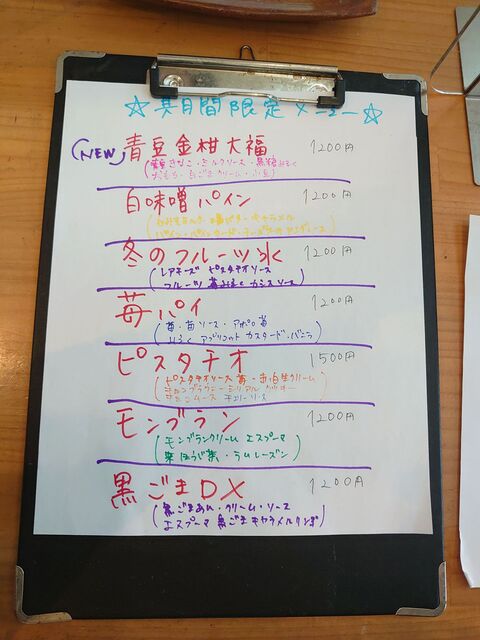 ☆期間限定メニュー☆
NEW 青豆金柑大福 1200円
きなこ・ミルクソース・黒糖みるく
おもち・白ごまクリーム・小豆
白味噌パイン 1200円
キャラメル
パイン・パインカード・チーズ
冬のフルーツ氷 1200円
レアチーズ ピスタチオソース
フルーツ 苺みるく カシスソース
苺パイ 1200円
苺・苺ソース・アポロ苺
みるく アプリコット カスタード・バニラ
ピスタチオ 1500円
ピスタチオソース 苺・生クリーム
キャラブラウニー シリアル
チョコムース チェリーソース
モンブラン 1200円
モンブランクリーム エスプーマ
栗 ほうじ茶・ラムレーズン
黒ごまDX 1200円
黒ごまあん・クリーム・ソース
エスプーマ 黒ごま キャラメル